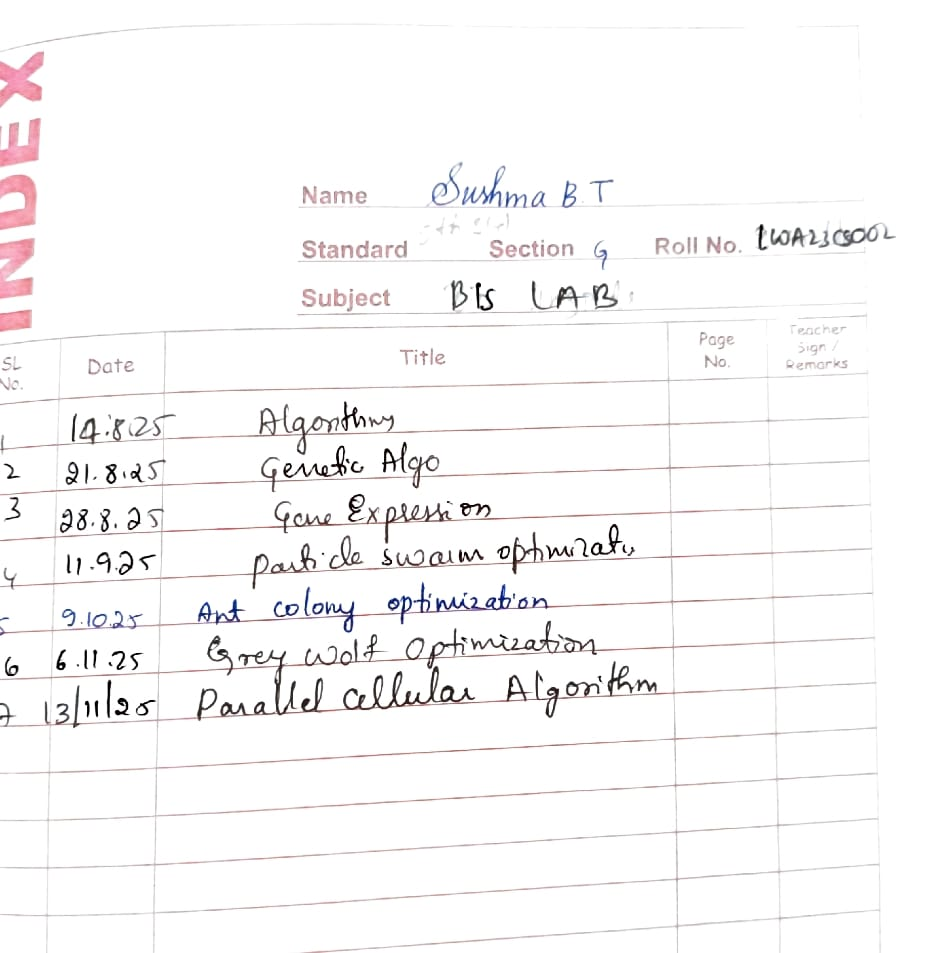 INDEX
Name Sushma B.T
Standard Section G Roll No. 1WA23CS002
Subject BIS LAB
SL No. Date Title Page No. Teacher Sign / Remarks
1 14.8.25 Algorithms
2 21.8.25 Genetic Algo
3 28.8.25 Gene Expression
4 11.9.25 Particle swarm optimizati
5 9.10.25 Ant colony optimization
6 6.11.25 Grey Wolf Optimization
7 13/11/25 Parallel cellular Algorithm